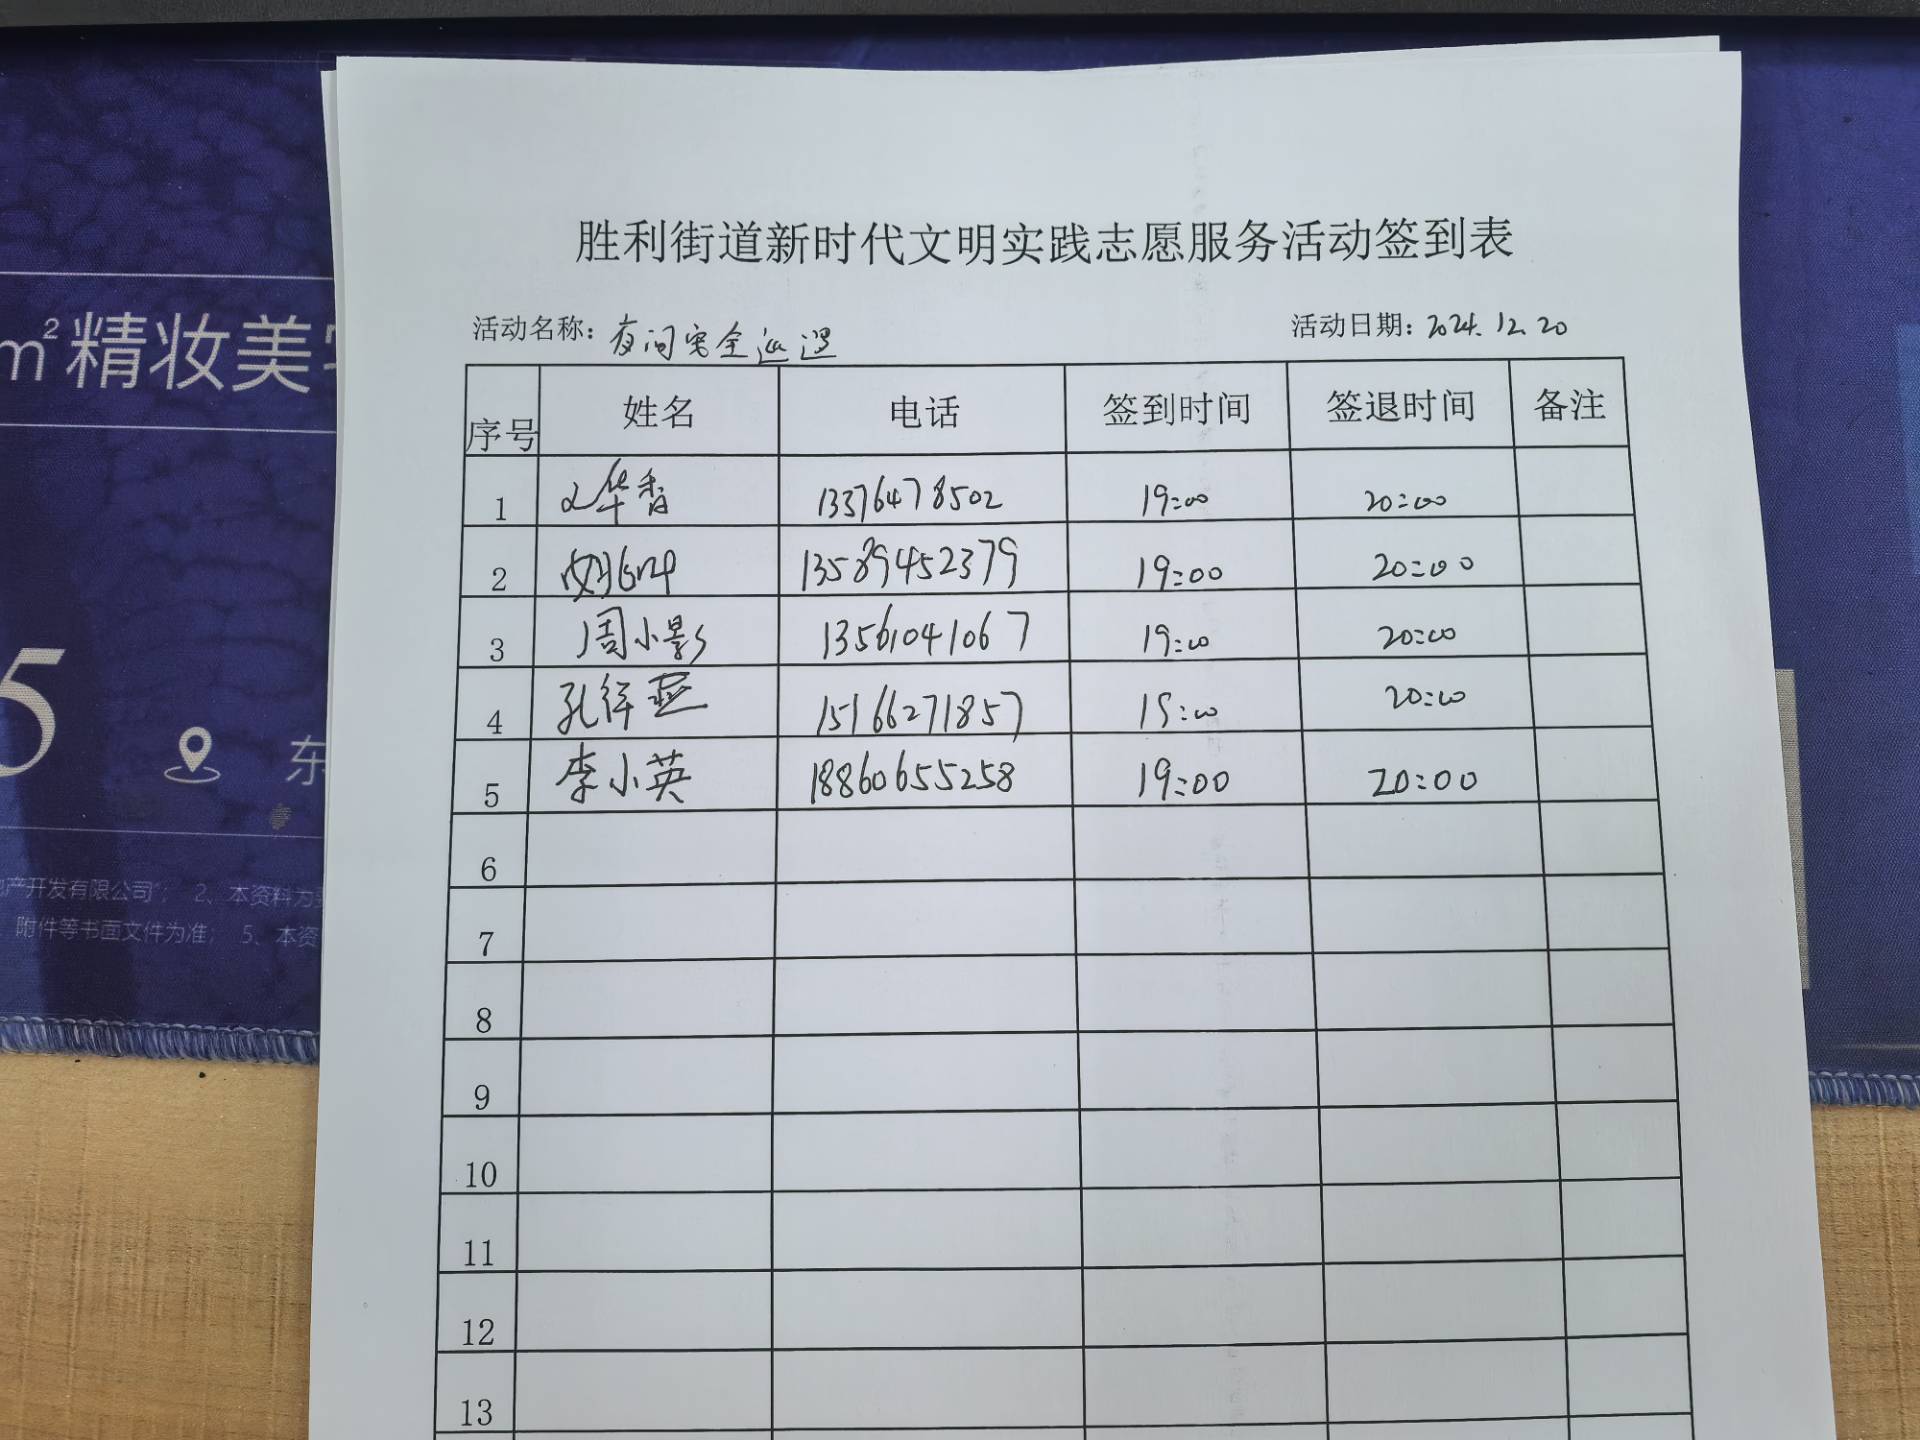 胜利街道新时代文明实践志愿服务活动签到表
活动名称：夜间安全巡逻 活动日期：2024.12.20
序号 姓名 电话 签到时间 签退时间 备注
1 华香 13376478502 19:00 20:00
2 13589452379 19:00 20:00
3 周小影 13561041067 19:00 20:00
4 孔祥燕 15166271857 19:00 20:00
5 李小英 18860655258 19:00 20:00
6
7
8
9
10
11
12
13
m²精妆美
5
东
产开发有限公司； 2、本资料为
附件等书面文件为准； 5、本资